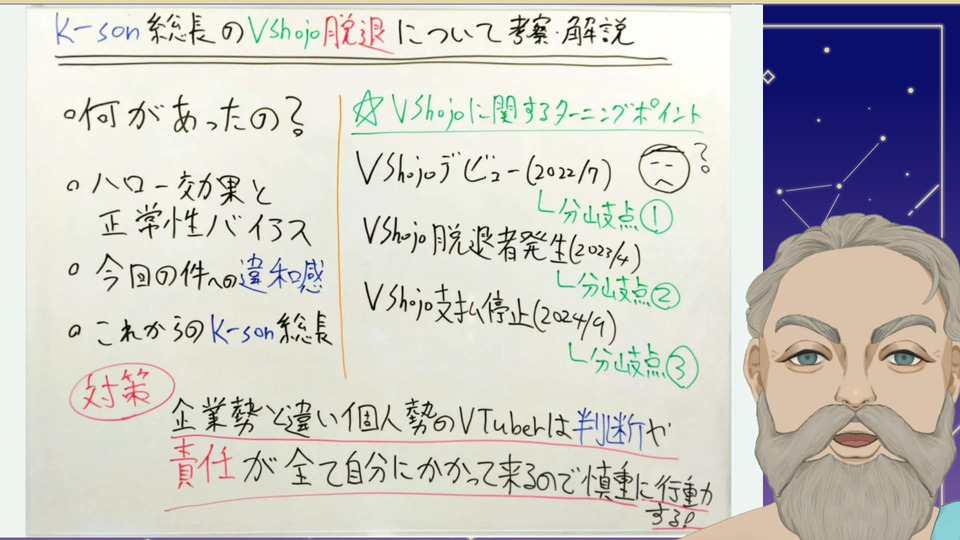 K-son総長のVShojo脱退について考察・解説
何があったの?
ハロー効果と
正常性バイアス
今回の件への違和感
これからのK-son総長
☆VShojoに関するターニングポイント
VShojoデビュー(2022/7)
?
分岐点①
VShojo脱退者発生(2023/4)
分岐点②
VShojo支払停止(2024/9)
分岐点③
対策
企業勢と違い個人勢のVTuberは判断や
責任が全て自分にかかって来るので慎重に行動
する!